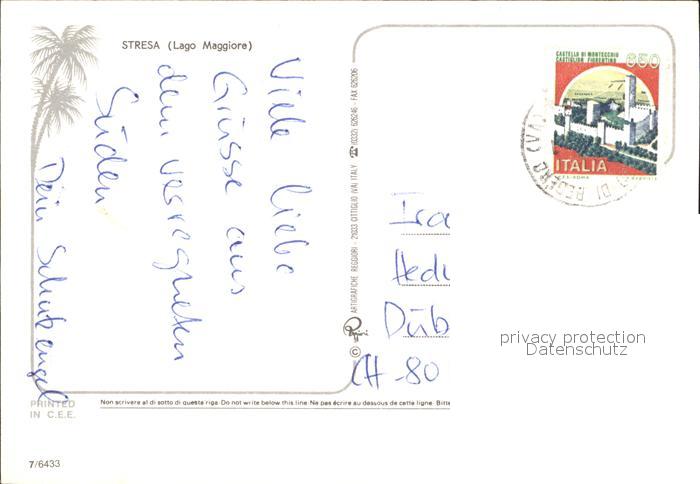 STRESA (Lago Maggiore)
Viele liebe
Grüsse aus
dem verregneten
Süden
Dein Schutzengel
PRINTED
IN C.E.E.
7/6433
© ARTIGRAFICHE REGGIORI - 21033 CITTIGLIO (VA) ITALY ☎ (0332) 626245 - FAX 626206
CASTELLO DI MONTECCHIO
CASTIGLION FIORENTINO
650
ITALIA
Ira
Hedi
Düb
CH-80
privacy protection
Datenschutz
Non scrivere al di sotto di questa riga. Do not write below this line. Ne pas écrire au dessous de cette ligne. Bitte